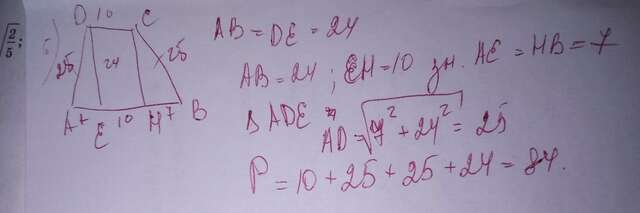 √2/5;
б)
D 10 C
25 24 25
A 7 E 10 H 7 B
AB = DE = 24
AB = 24 ; EH = 10 зн. AE = HB = 7
Δ ADE
AD = √7² + 24² = 25
P = 10 + 25 + 25 + 24 = 84.